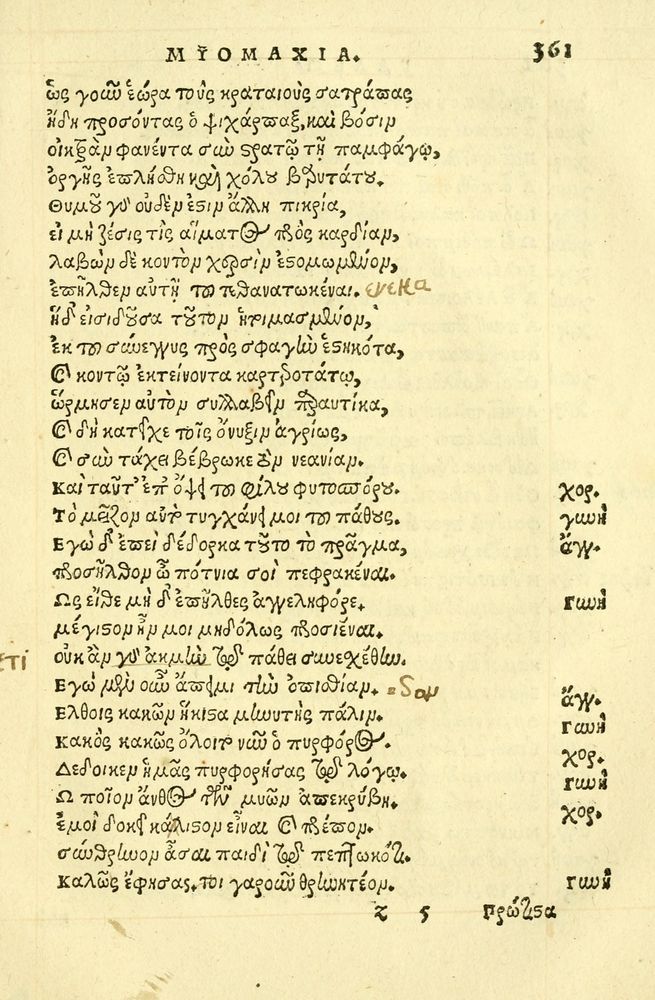 ΜΥΟΜΑΧΙΑ. 361
ὡς γοῦν ἑώρα τοὺς κραταιοὺς σατράπας
ἤδη προσόντας ὁ ψιχάρπαξ, καὶ βόσιν
οἰκτρὰν φανέντα σὺν στρατῷ τῇ παμφάγῳ,
ὀργῆς ἐπλήσθη καὶ χόλου βαρυτάτου.
Θυμοῦ γὰρ οὐδέν ἐστιν ἄλλη πικρία,
εἰ μὴ ζέσις τὶς αἵματος πρὸς καρδίαν,
λαβὼν δὲ κοντὸν χερσὶν ἐστομωμένον,
ἐπῆλθεν αὐτῇ τοῦ τεθανατωκέναι. ενεκα
ἡ δ' εἰσιδοῦσα τοῦτον ἡτιμασμένον,
ἐκ τοῦ σύνεγγυς πρὸς σφαγὴν ἑστηκότα,
καὶ κοντῷ ἐκτείνοντα καρτεροτάτῳ,
ὥρμησεν αὐτὸν συλλαβεῖν παραυτίκα,
καὶ δὴ κατεῖχε τοῖς ὄνυξιν ἀγρίως,
καὶ σὺν τάχει βέβρωκε τὸν νεανίαν.
Καὶ ταῦτ' ἐπ' ὄψει τοῦ φίλου φυτοσπόρου. χορ.
Τὸ μεῖζον αὐτὸ τυγχάνει μοι τοῦ πάθους. γυνὴ
Εγὼ δ' ἐπεὶ δέδορκα τοῦτο τὸ πρᾶγμα, ἄγγ.
προσῆλθον ὦ πότνια σοὶ πεφρακέναι.
Ως εἴθε μὴ δ' ἐπῆλθες ἀγγεληφόρε. γυνὴ
μέγιστον ἦν μοι μηδόλως προσιέναι.
οὐκ ἂν γὰρ ἀκμὴν τῷ πάθει συνεχέθην. ετί
Εγὼ μὲν οὖν ἄπειμι τὴν ὀπισθίαν. εδον ἄγγ.
Ελθοις κακῶν ἥκιστα μηνυτὴς πάλιν. γυνὴ
Κακὸς κακῶς ὄλοιτο νῦν ὁ πυρφόρος. χορ.
Δέδοικεν ἡμᾶς πυρφορήσας τῷ λόγῳ. γυνὴ
Ω ποῖον ἄνθος τῶν μυῶν ἀπεκρύβη. χορ.
ἐμοὶ δοκεῖ κάλιστον εἶναι καὶ πρέπον.
σύνθρηνον ἆσαι παιδὶ τῷ πεπτωκότι.
Καλῶς ἔφησας. τοι γαροῦν θρηνητέον. γυνὴ
z 5 Πρώτιστα